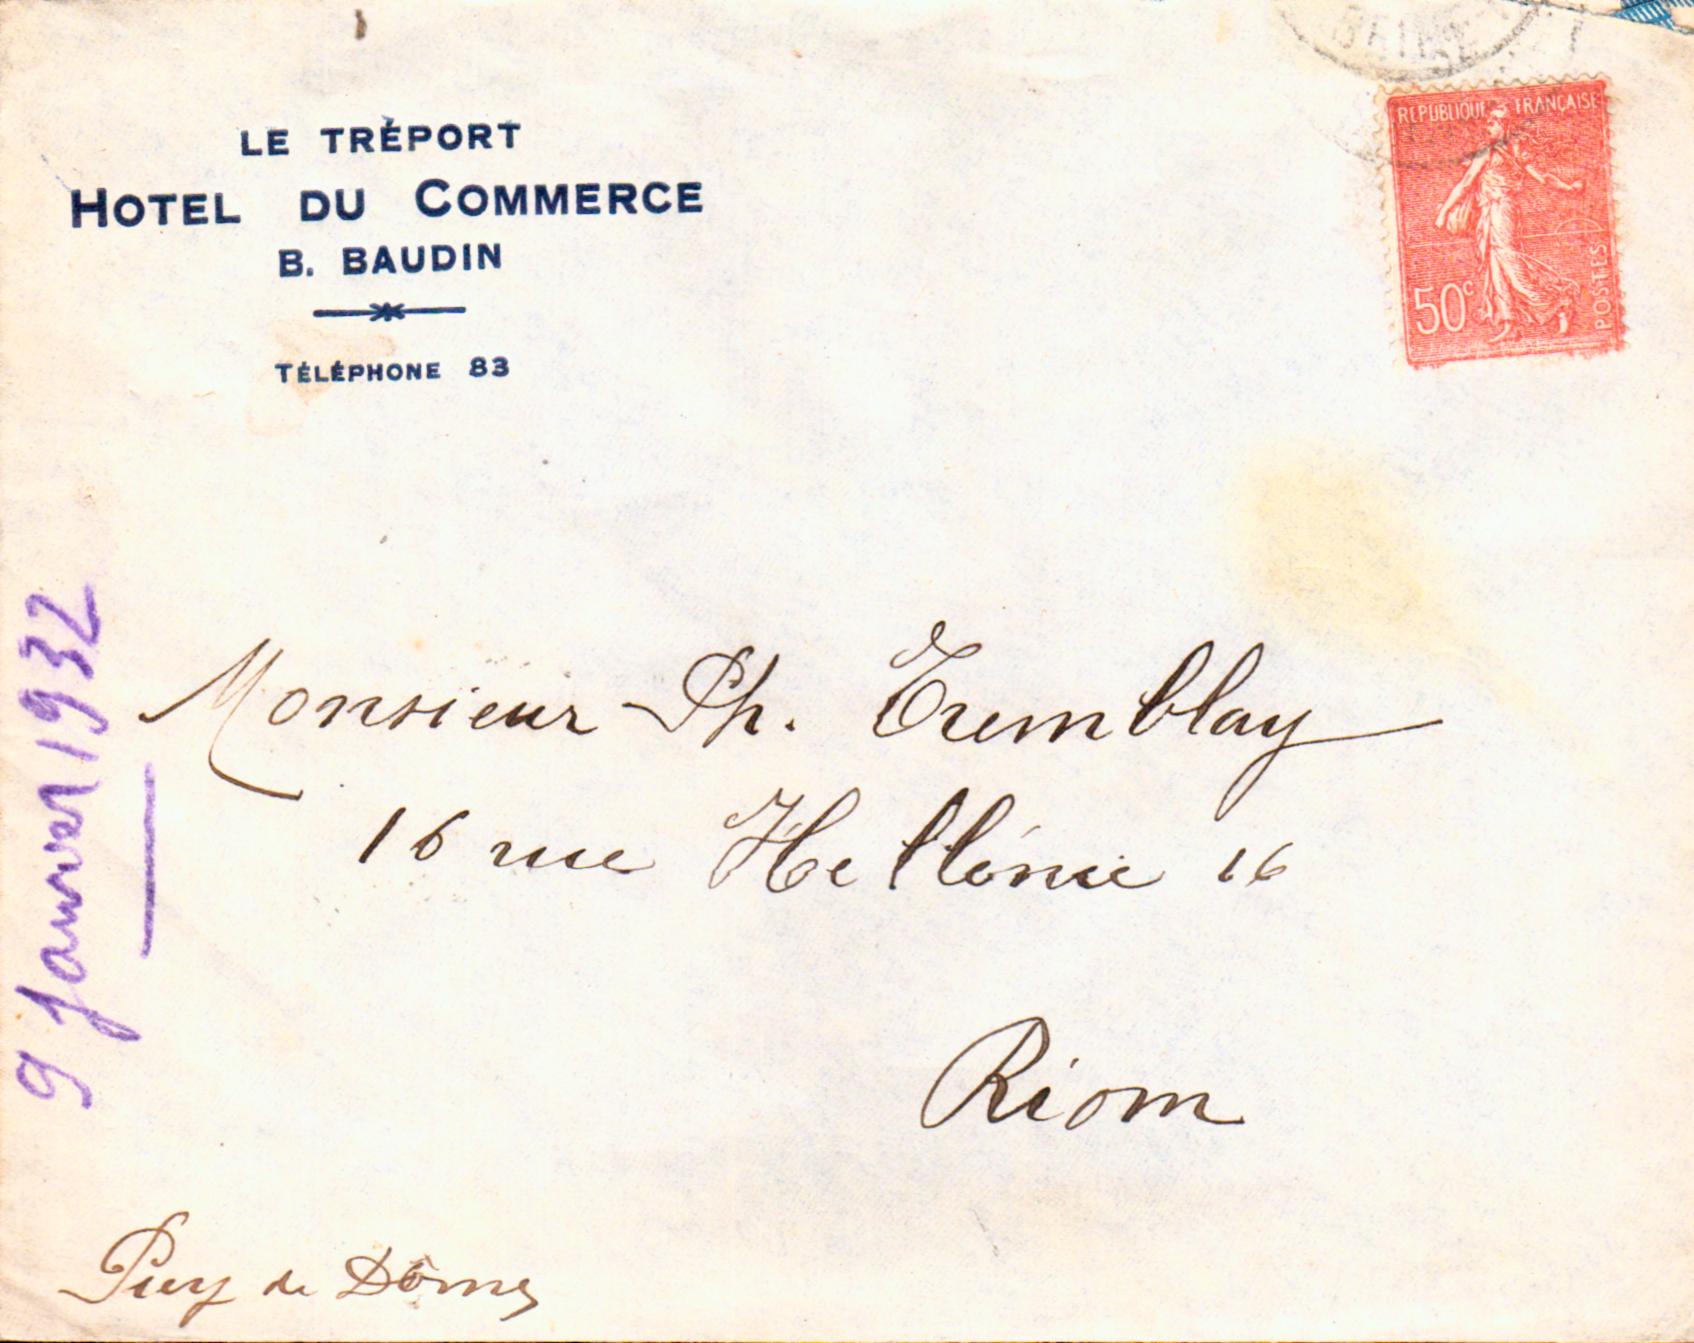 LE TRÉPORT
HOTEL DU COMMERCE
B. BAUDIN
TÉLÉPHONE 83
REPUBLIQUE FRANÇAISE
50c
POSTES
9 Janvier 1932
Monsieur Ph. Tremblay
16 rue Hellénie 16
Riom
Puy de Dôme